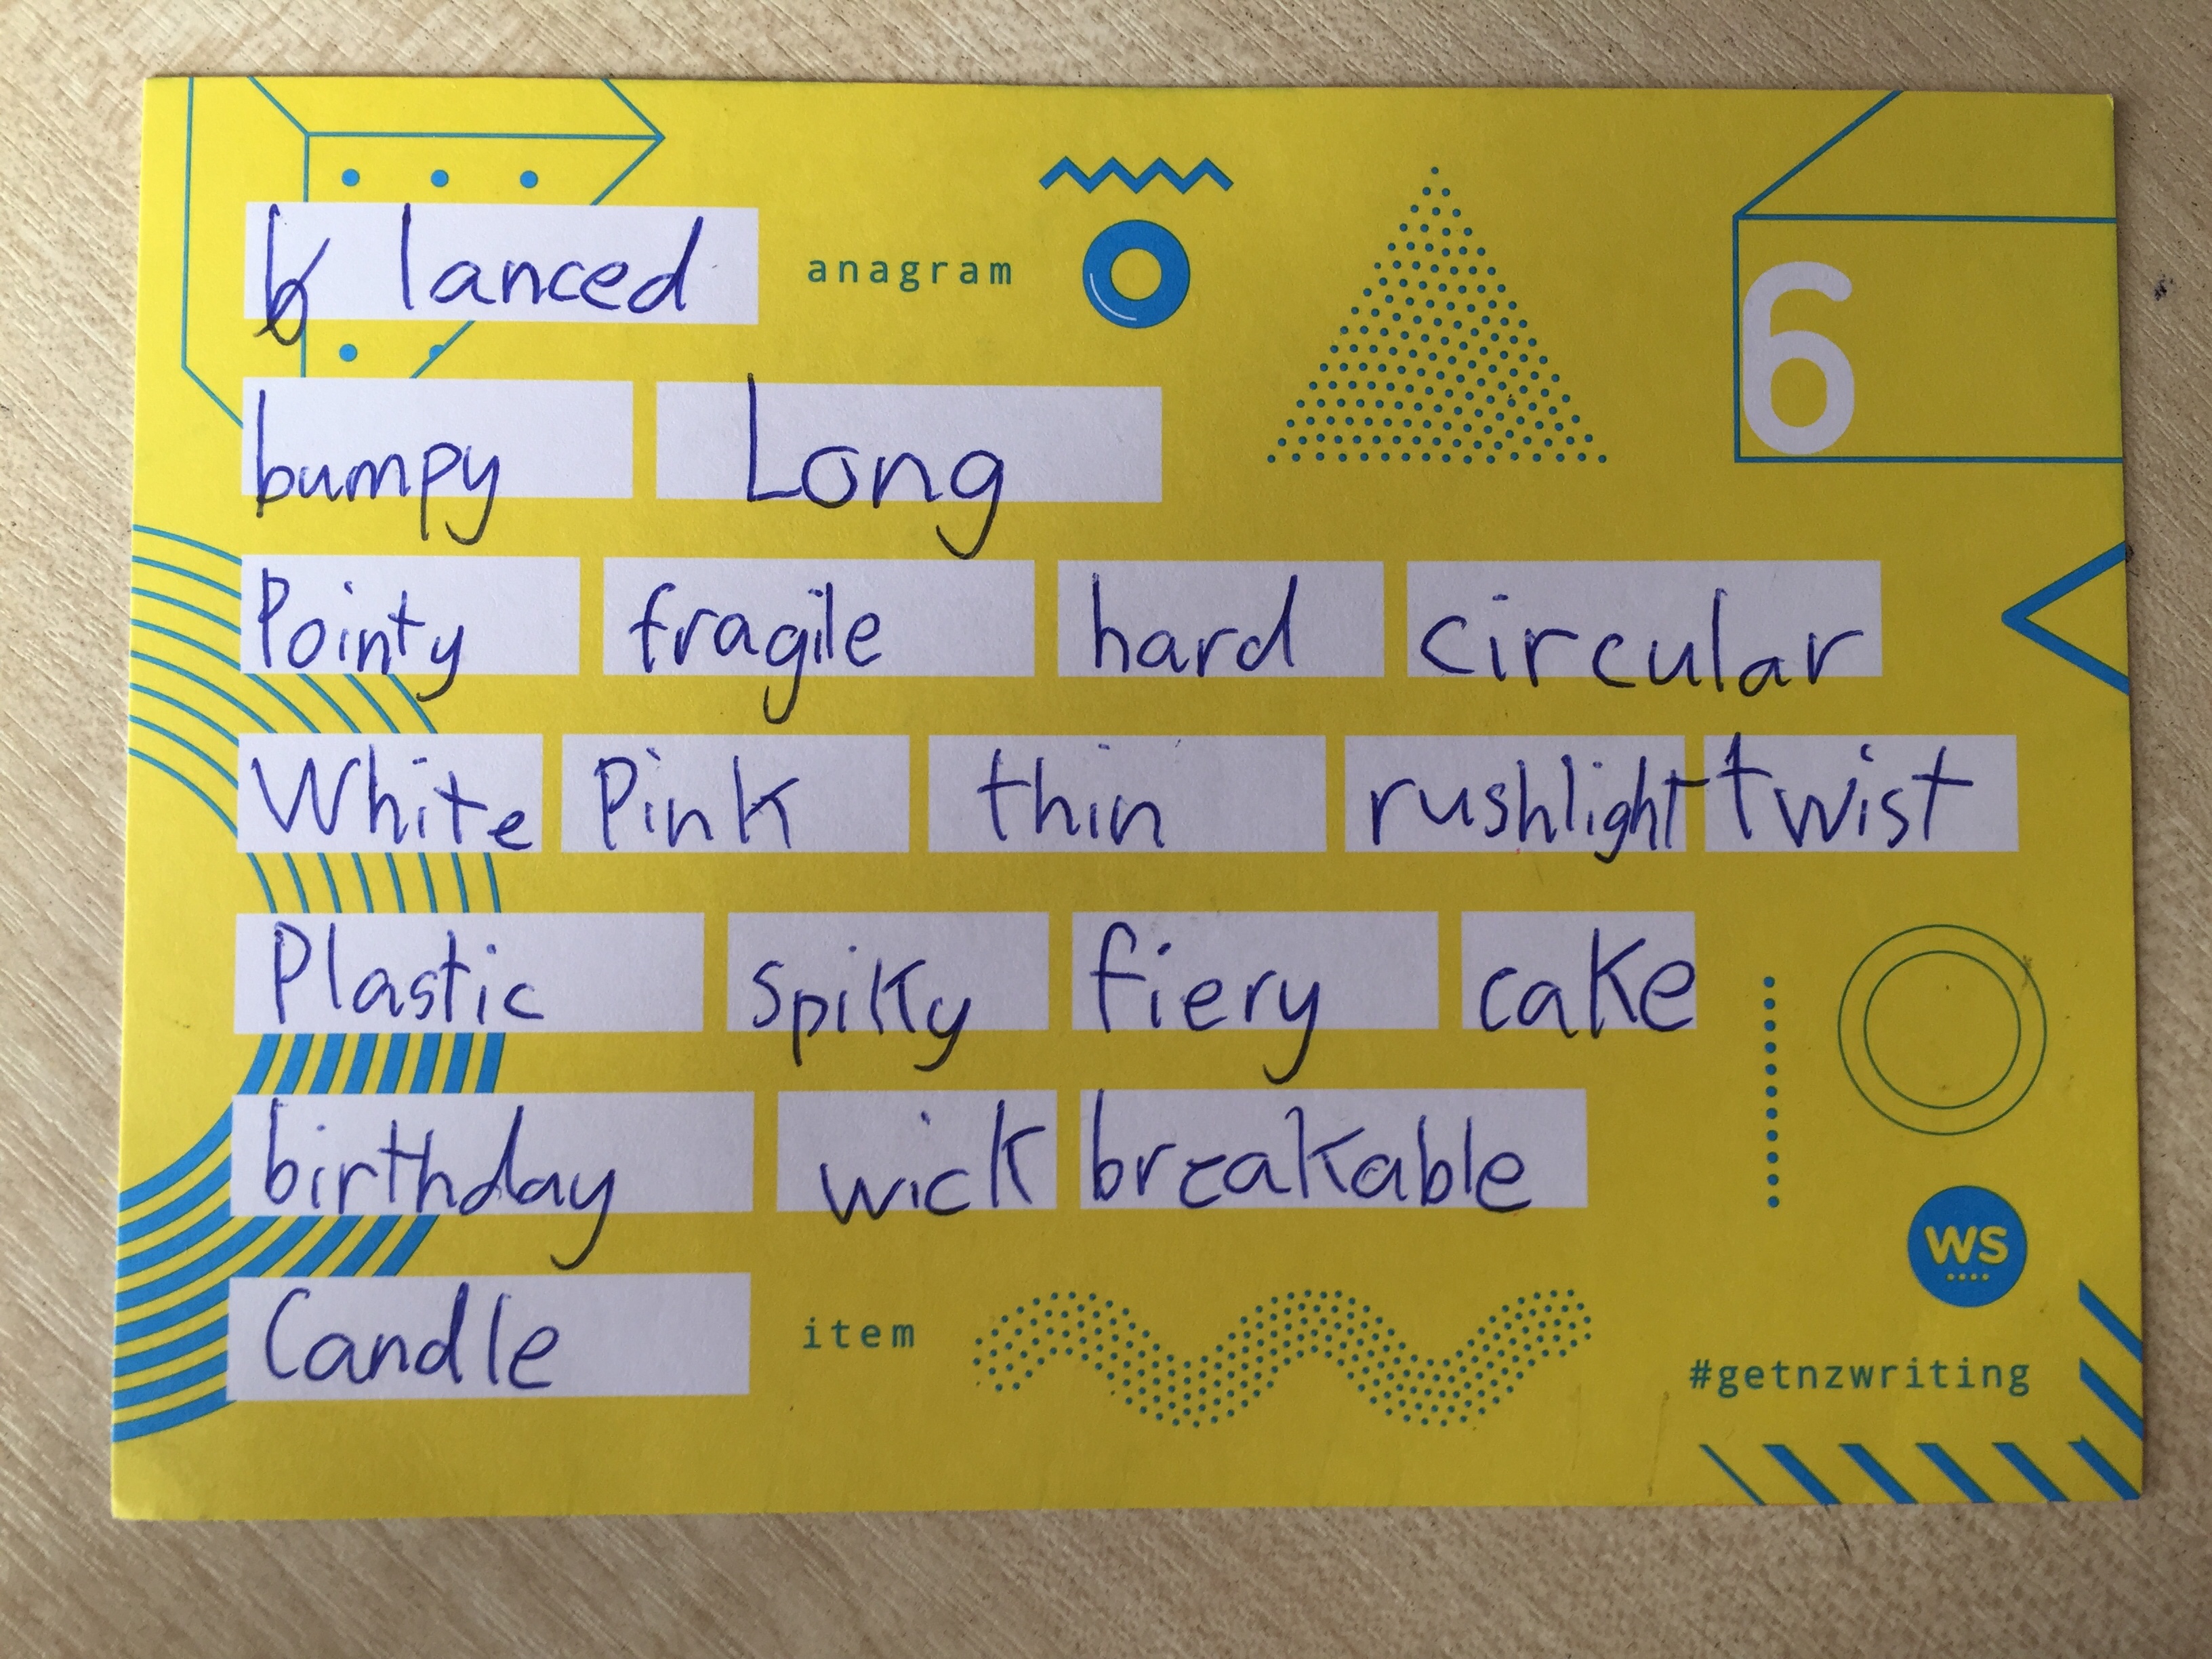 lanced anagram
6
bumpy Long
Pointy fragile hard circular
White Pink thin rushlight twist
Plastic spiky fiery cake
birthday wick breakable
WS
Candle item
#getnzwriting